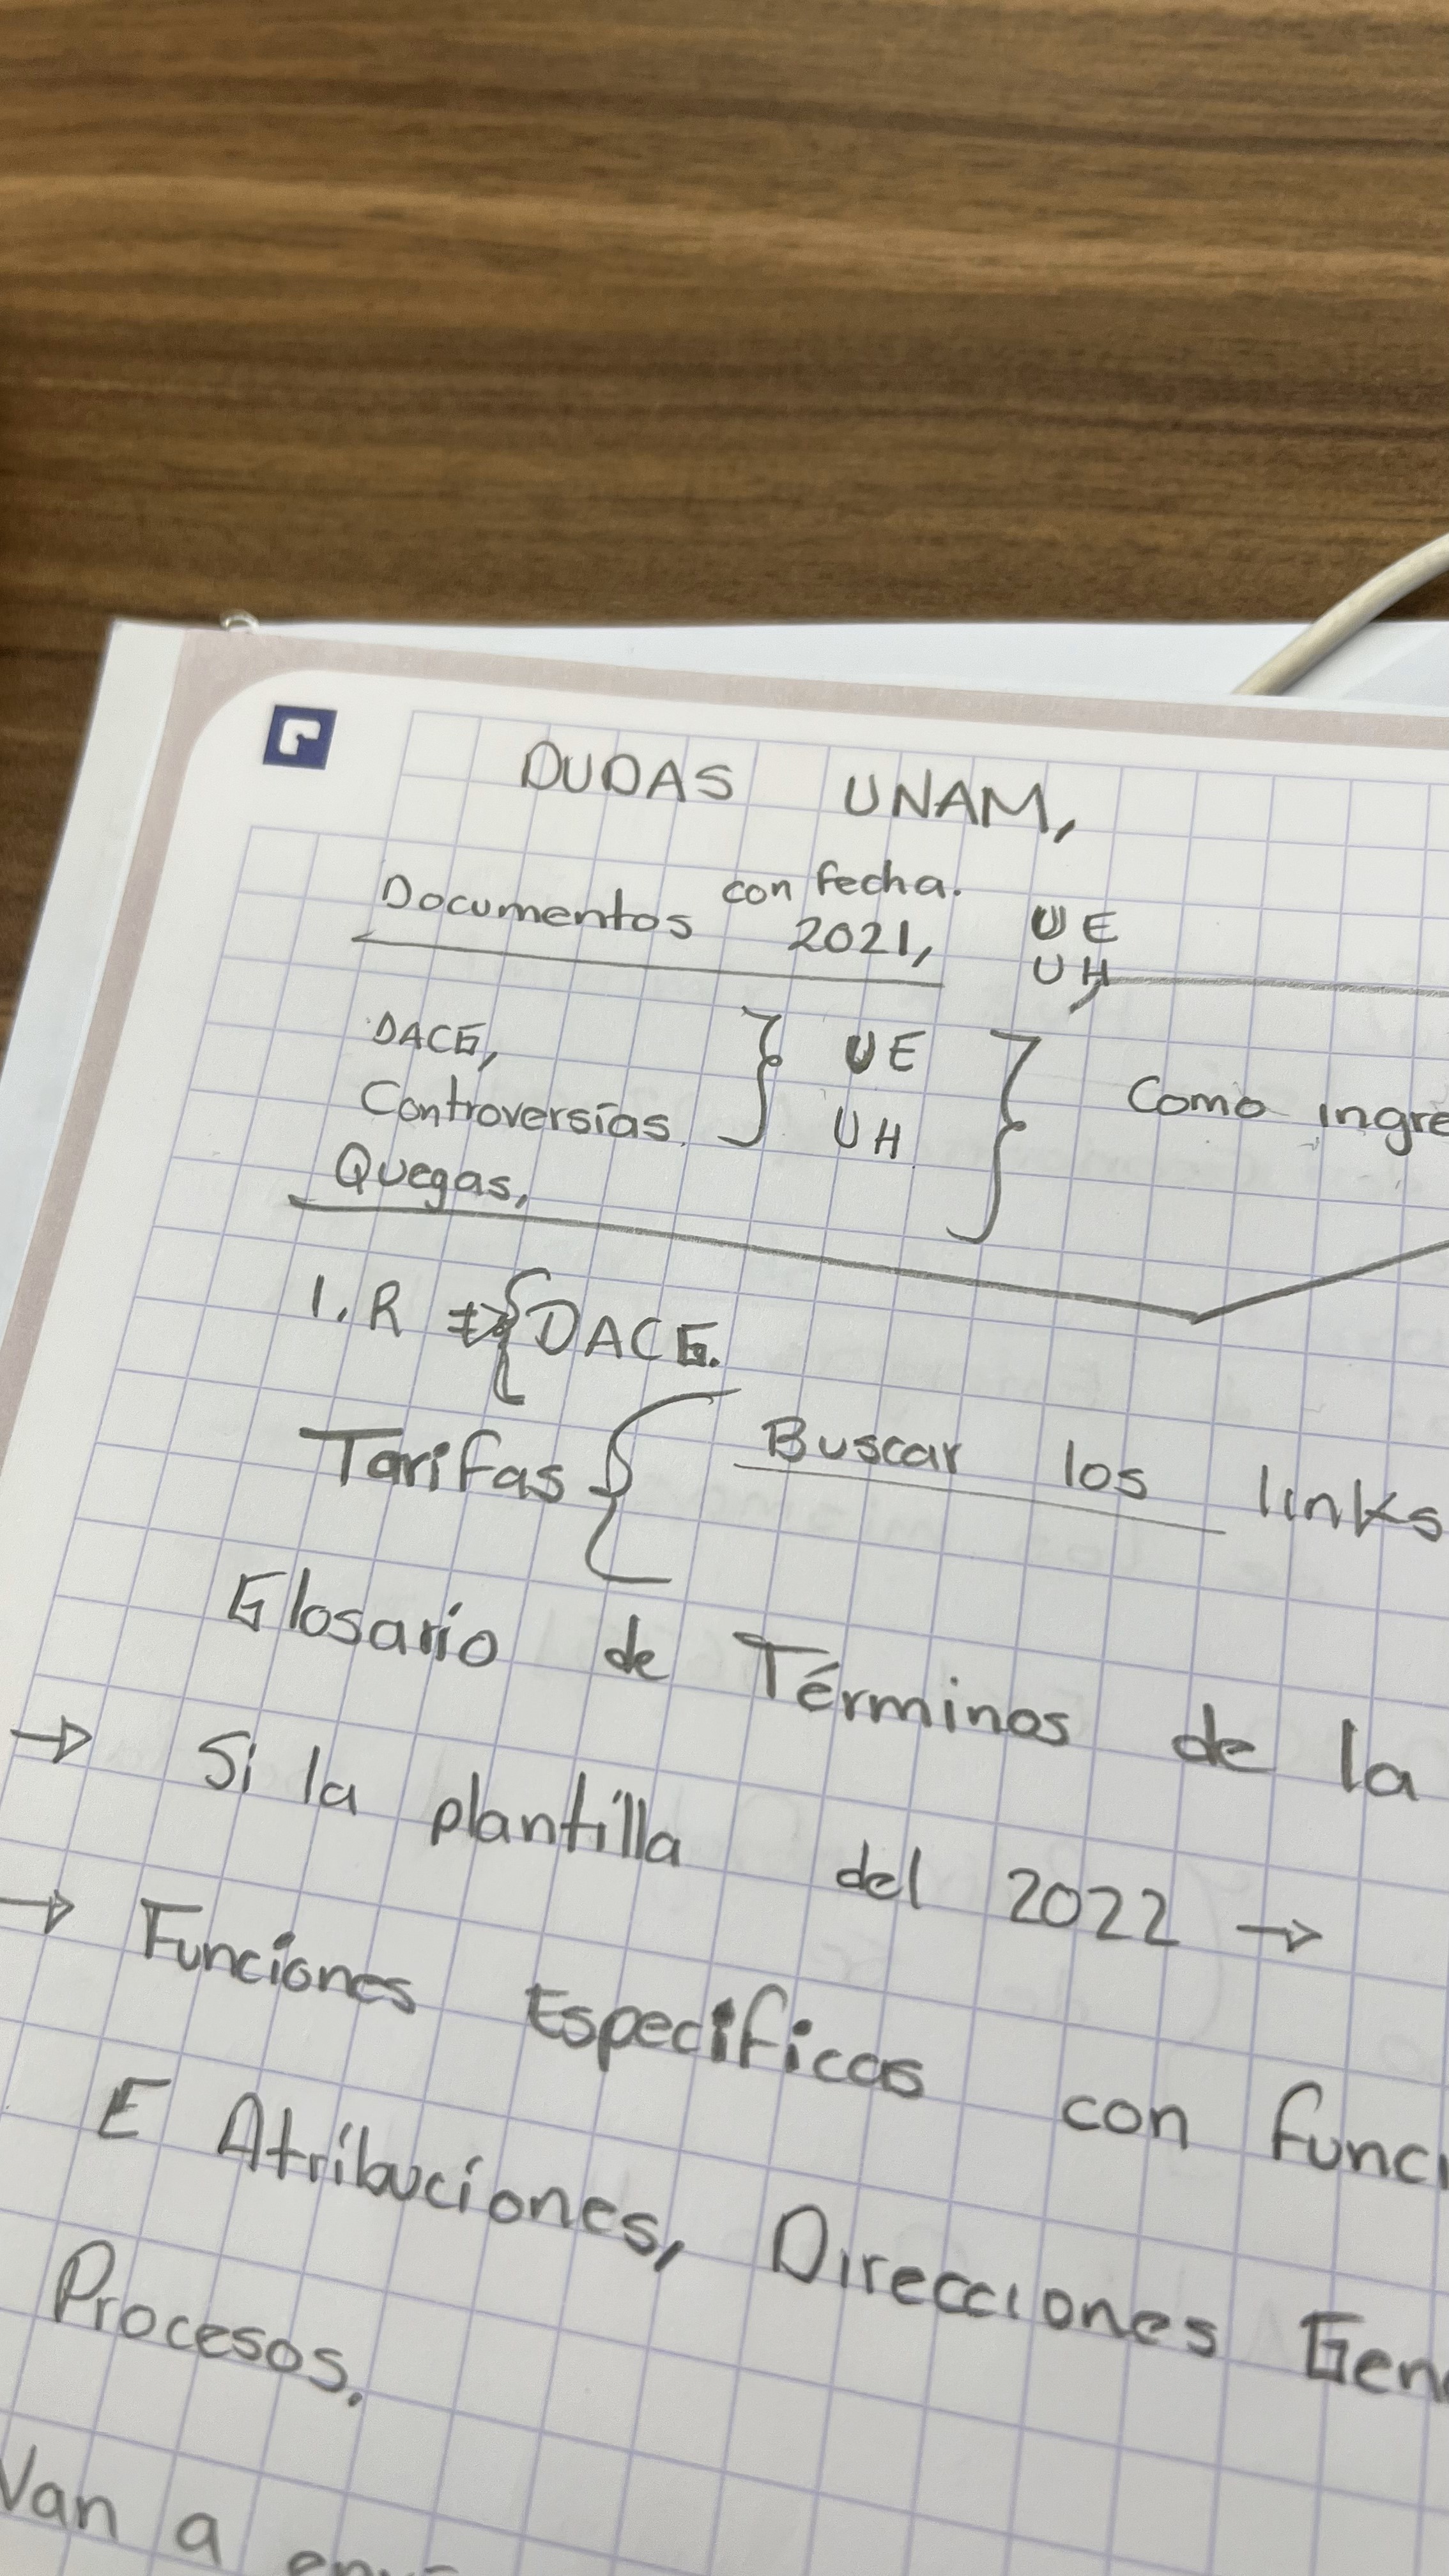 DUDAS UNAM,
Documentos con fecha.
2021,
UE
UH
DACG,
Controversías.
Quegas,
UE
UH
Como ingre
1. R => { DACG.
Tarifas { Buscar los links
Glosario de Términos de la
→ Si la plantilla del 2022 →
→ Funciones Especificas con funci
E Atribuciones, Direcciones Gene
Procesos.
Van a